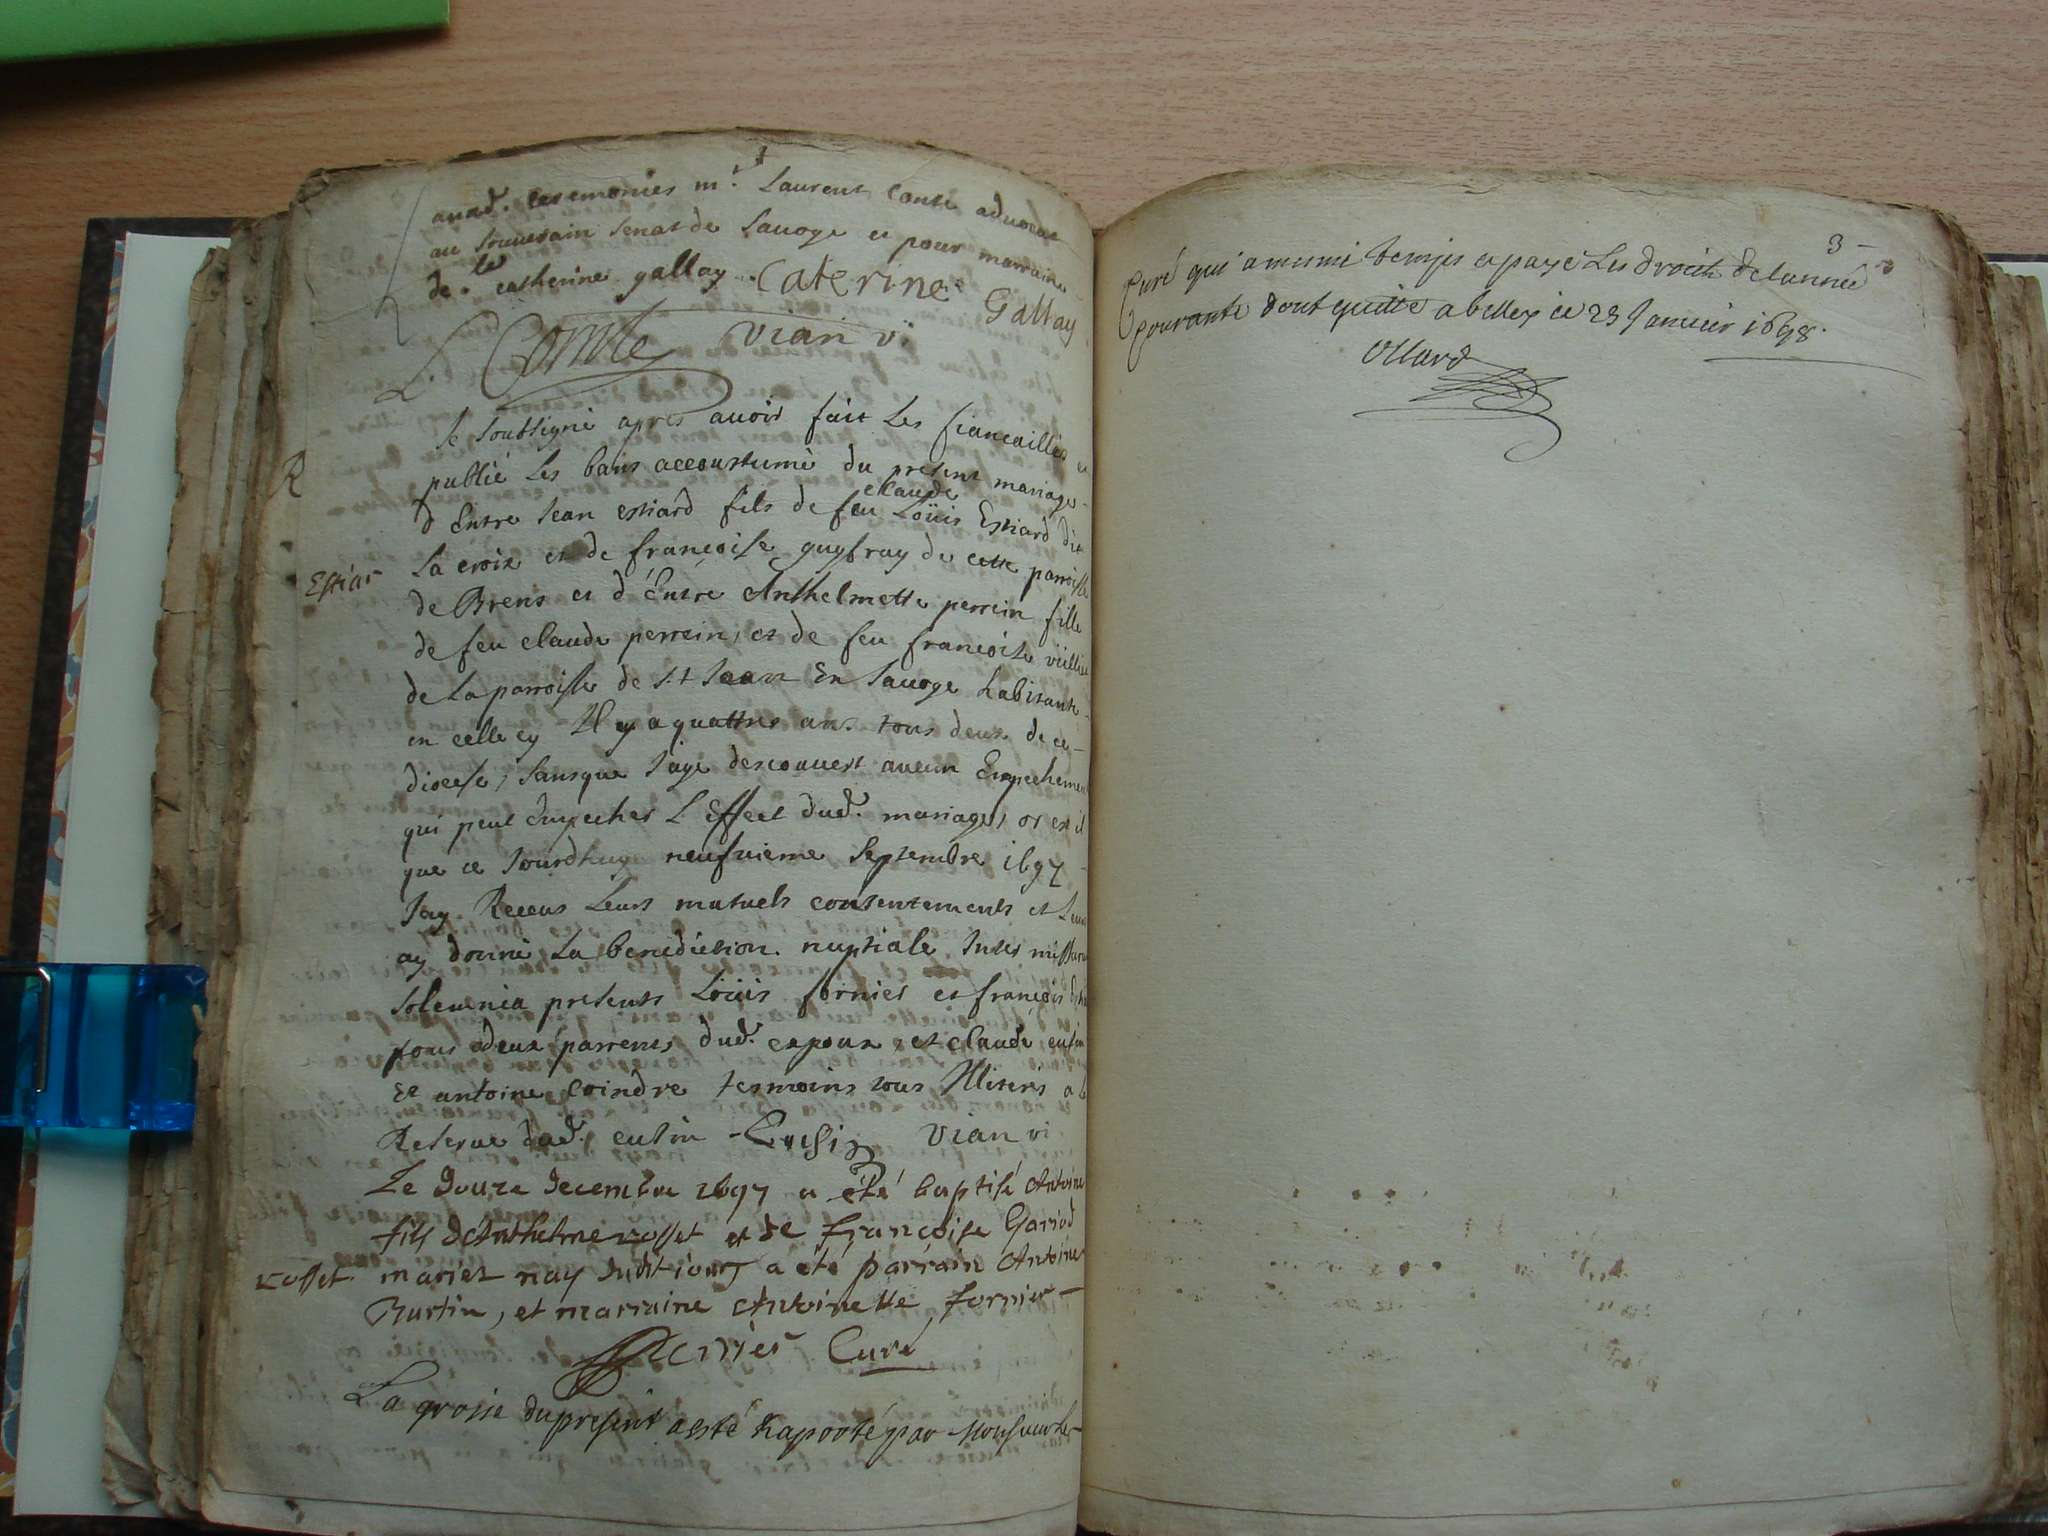 auxd. ceremonies mr. Laurent Conte advocat
au souverain senat de Savoye et pour marraine
delle. Catherine gallay. Caterine Gallay
L. Comte vian vi.
Je soubsigné apres avoir fait Les fiancailles et
R
publié Les bans accoustumé du present mariage
d'Entre Jean estiard fils de feu claude Loüis Estiard dit
La croix et de francoise guyfray de cette parroisse
Estiar
de Brens et d'Entre Anthelmette perrein fille
de feu claude perrein, et de feu francoise
de La parroisse de St Jean En Savoye habitante
en celle cy Il y a quattres ans tous deux de ce
diocese, sans que J'aye descouvert aucun Empechement
qui peut Empecher L'Effect dud. mariage, or est il
que ce Jourdhuy neufvieme Septembre 1697
J'ay Receus Leurs mutuels consentements et Leurs
ay donné La benediction nuptiale Inter missarum
solemnia presents Loüis fornier et francois
tous deux parrents dud. expoux, et claude cusin
Et antoine coindre tesmoins tous Illiterés a la
Reserve dud. cusin - Cusin vian vi
Le douze decembre 1697 a été baptisé Antoine
fils d'Anthelme rosset et de françoise Gariod
rosset mariez nay dudit jour a été parrain Antoine
Burtin, et marraine Antoinette fornier
Curé
La grosse du present a esté Raporté par Monsieur le
3
Curé qui a mesme temps a payé Les droits de lannée
courante dont quitte a belley ce 23 Janvier 1698.
Ollard